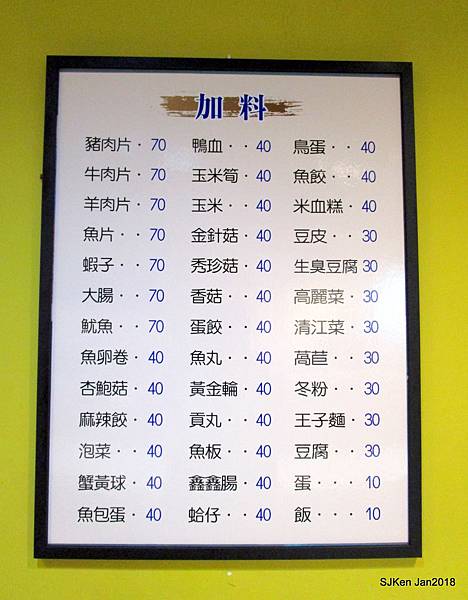 加料
豬肉片・70 鴨血・・40 鳥蛋・・40
牛肉片・70 玉米筍・40 魚餃・・40
羊肉片・70 玉米・・40 米血糕・40
魚片・・70 金針菇・40 豆皮・・30
蝦子・・70 秀珍菇・40 生臭豆腐 30
大腸・・70 香菇・・40 高麗菜・30
魷魚・・70 蛋餃・・40 清江菜・30
魚卵卷・40 魚丸・・40 萵苣・・30
杏鮑菇・40 黃金輪・40 冬粉・・30
麻辣餃・40 貢丸・・40 王子麵・30
泡菜・・40 魚板・・40 豆腐・・30
蟹黃球・40 鑫鑫腸・40 蛋・・・10
魚包蛋・40 蛤仔・・40 飯・・・10
SJKen Jan2018